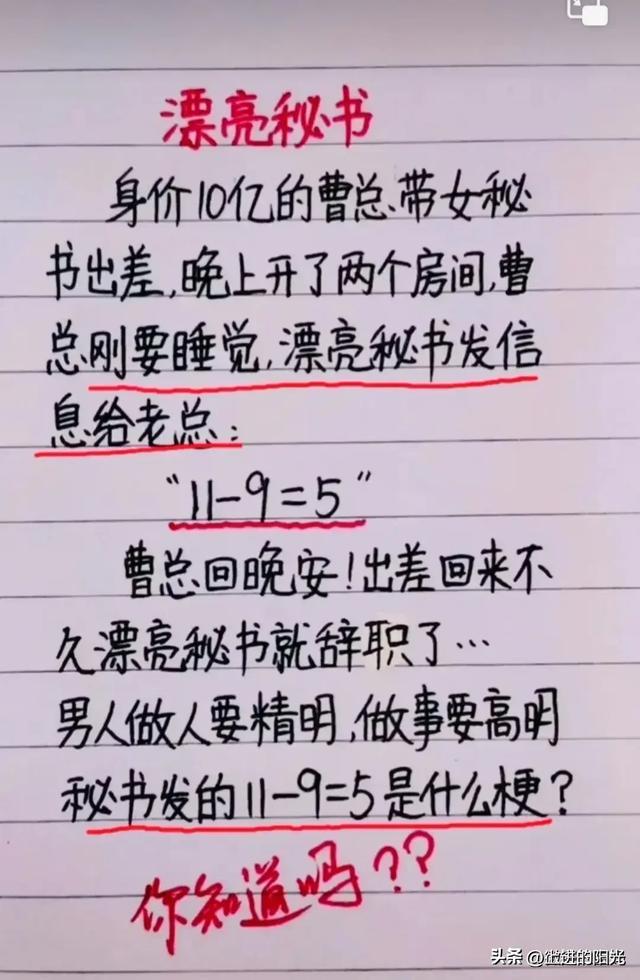 漂亮秘书
身价10亿的曹总带女秘
书出差,晚上开了两个房间,曹
总刚要睡觉,漂亮秘书发信
息给老总:
"11-9=5"
曹总回晚安!出差回来不
久漂亮秘书就辞职了…
男人做人要精明,做事要高明
秘书发的11-9=5是什么梗?
你知道吗??
头条 @微进的阳光